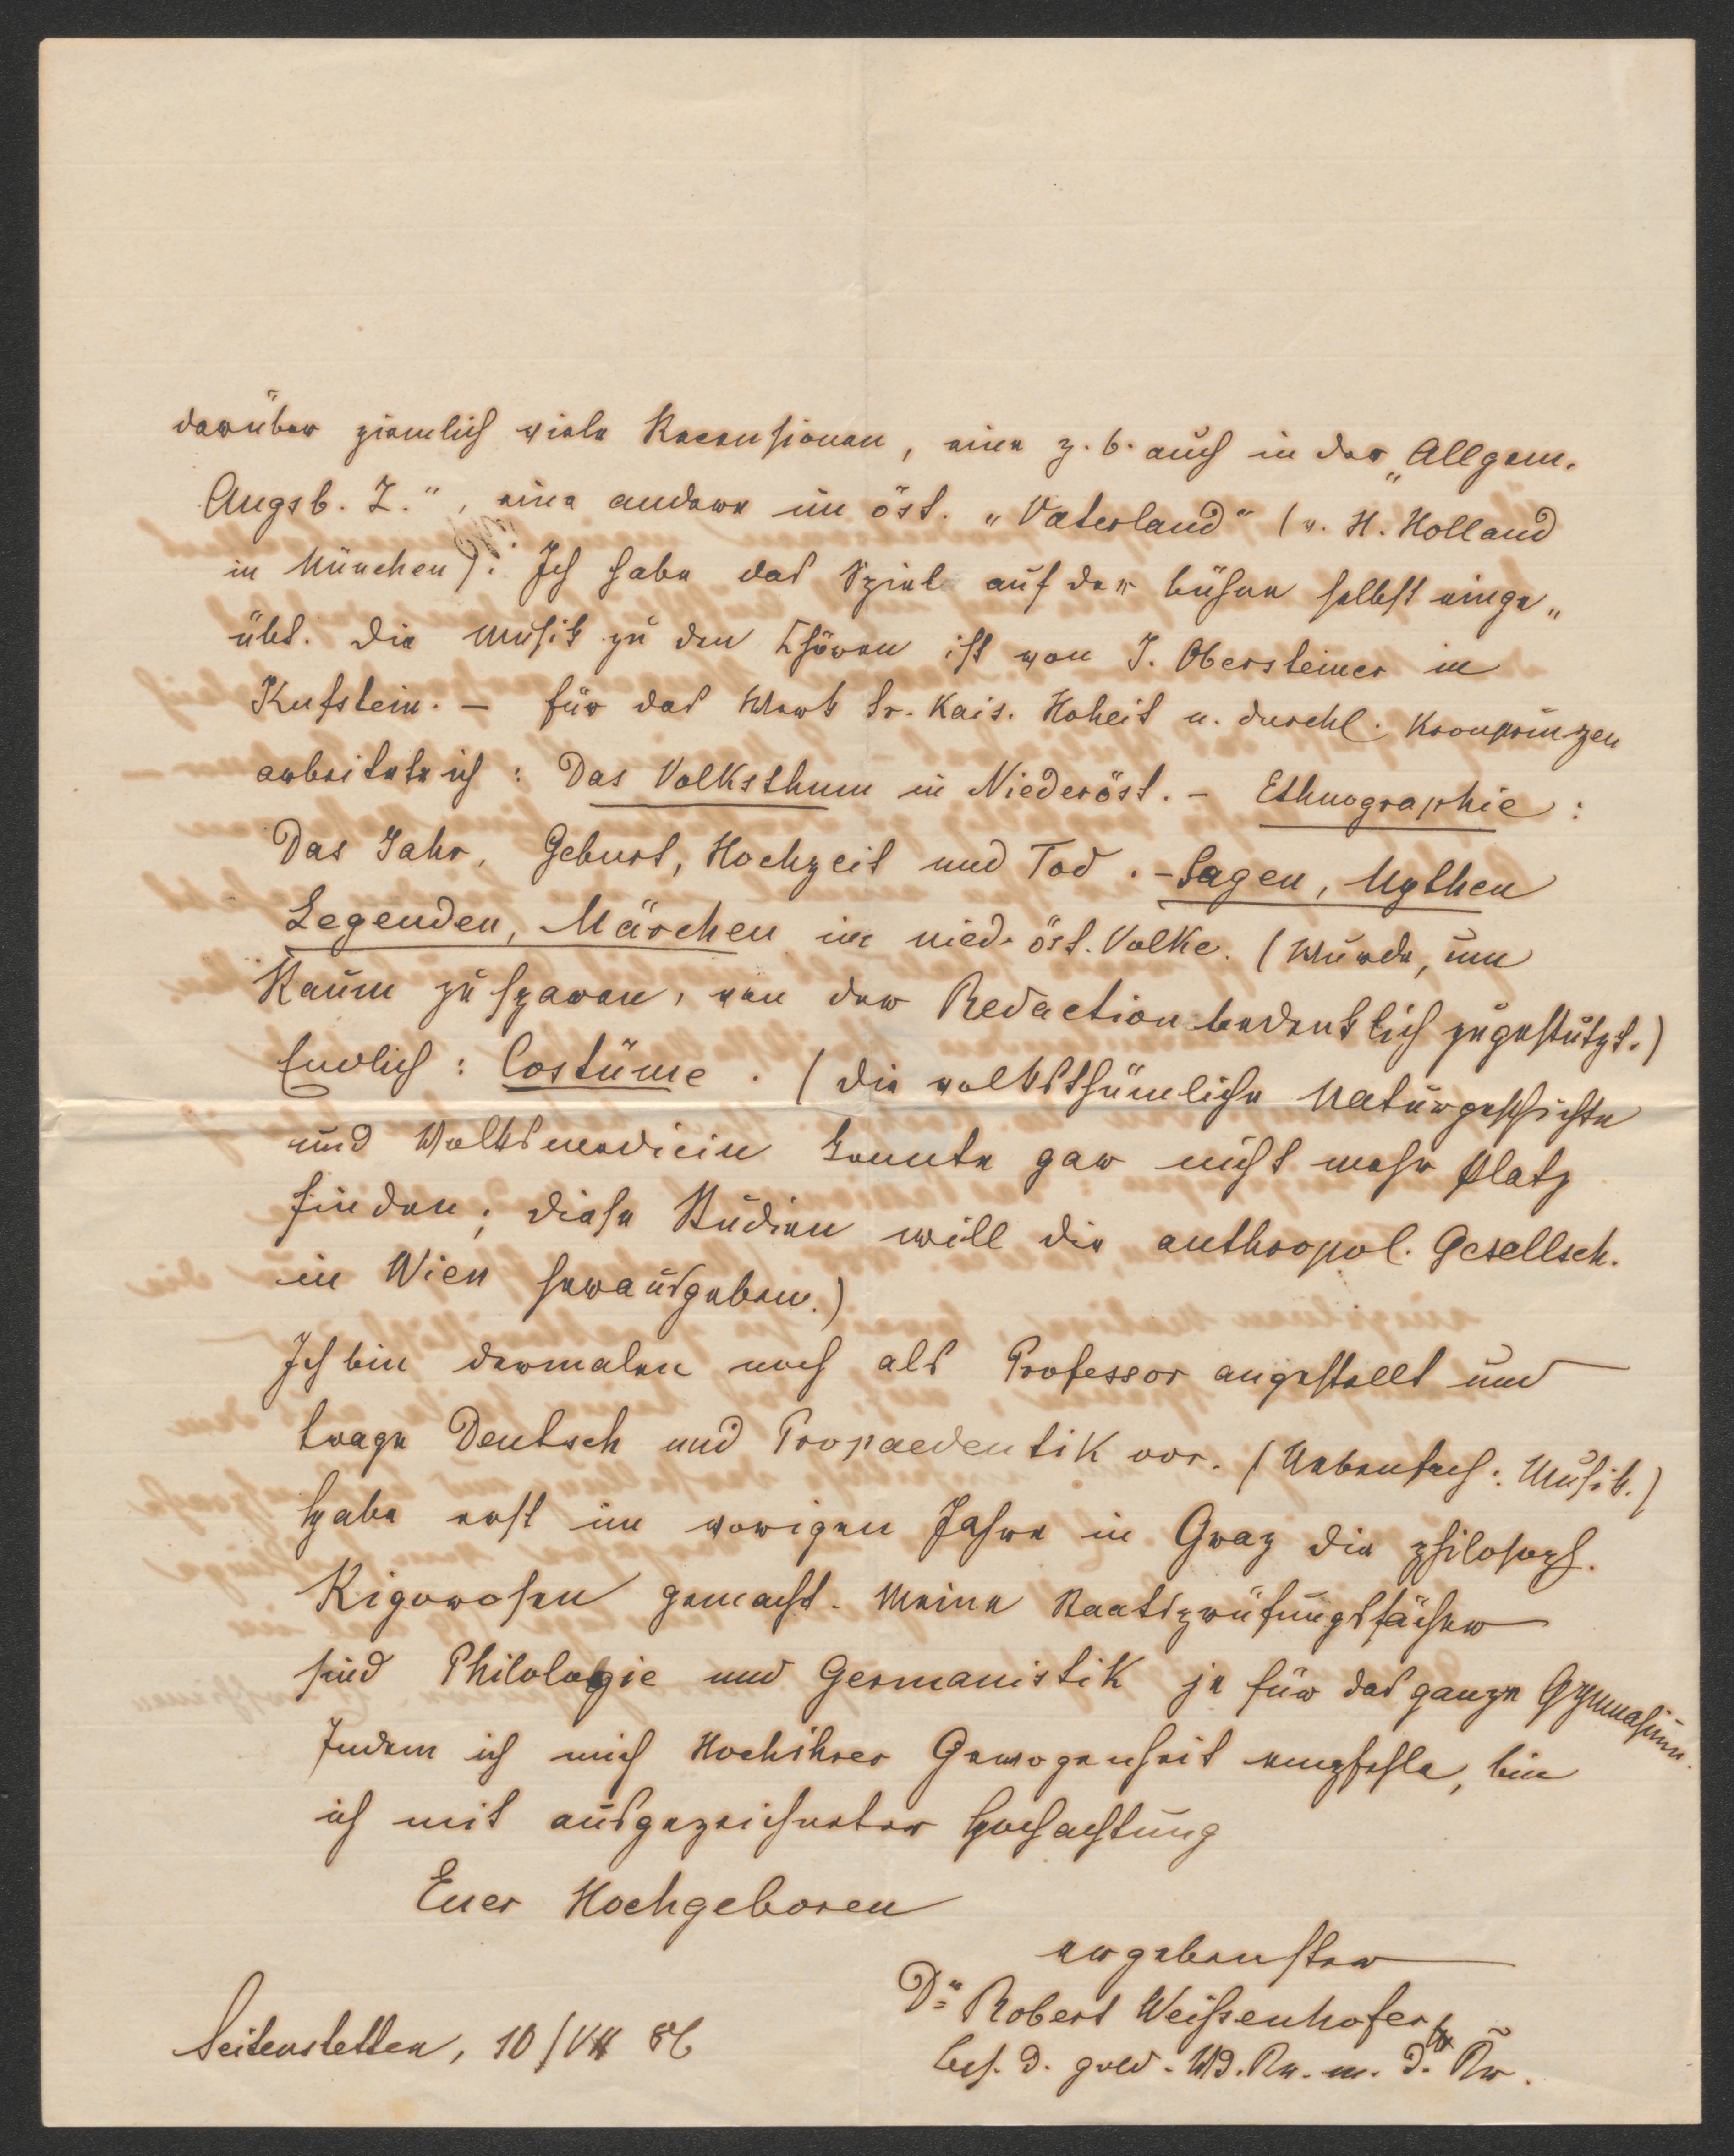 darüber ziemlich viele Recensionen, eine z. b. auch in der „Allgem.
Augsb. Z.", eine andere im öst. „Vaterland" (v. H. Holland
in München). Ich habe das Spiel auf der Bühne selbst einge„
übt. Die Musik zu den Chören ist von J. Obersteiner in
Kufstein. – Für das Werk Sr. Kais. Hoheit u. durchl. Kronprinzen
arbeitete ich: Das Volksthum in Niederöst. – Ethnographie:
Das Jahr, Geburt, Hochzeit und Tod. – Sagen, Mythen
Legenden, Märchen im nied. öst. Volke. (Wurde, um
Raum zu sparen, von der Redaction bedenklich zugestutzt.)
Endlich: Costüme. (Die volksthümliche Naturgeschichte
und Volksmedicin konnte gar nicht mehr Platz
finden; diese Studien will die anthropol. Gesellsch.
in Wien herausgeben.)
Ich bin dermalen noch als Professor angestellt und
trage Deutsch und Propaedeutik vor. (Nebenfach: Musik.)
Habe erst im vorigen Jahre in Graz die philosoph.
Rigorosen gemacht. Meine Staatsprüfungsfächer
sind Philologie und Germanistik je für das ganze Gymnasium.
Indem ich mich Hochihrer Gewogenheit empfehle, bin
ich mit ausgezeichneter Hochachtung
Euer Hochgeboren
ergebenster
Dr. Robert Weißenhofer
Seitenstetten, 10/VII 86
bes. d. gold. M. m. d.